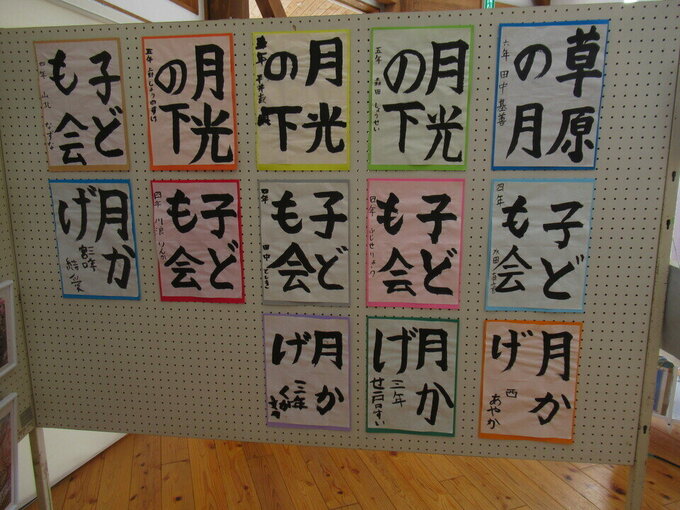 草原
の月
六年 田中
月光
の下
五年
月光
の下
月光
の下
五年
子ど
も会
四年
子ど
も会
四年
子ど
も会
四年
子ど
も会
四年 田中
子ど
も会
四年
月か
げ
三年
月か
げ
西 あやか
月か
げ
三年
月か
げ
三年